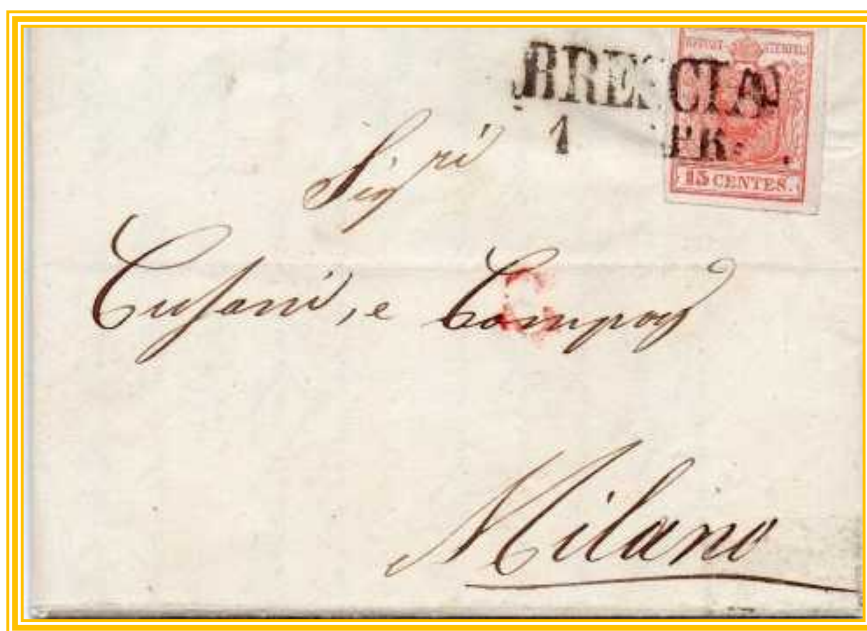 BRESCIA
1
15 CENTES.
Sig.ri
Cusani, e
Milano